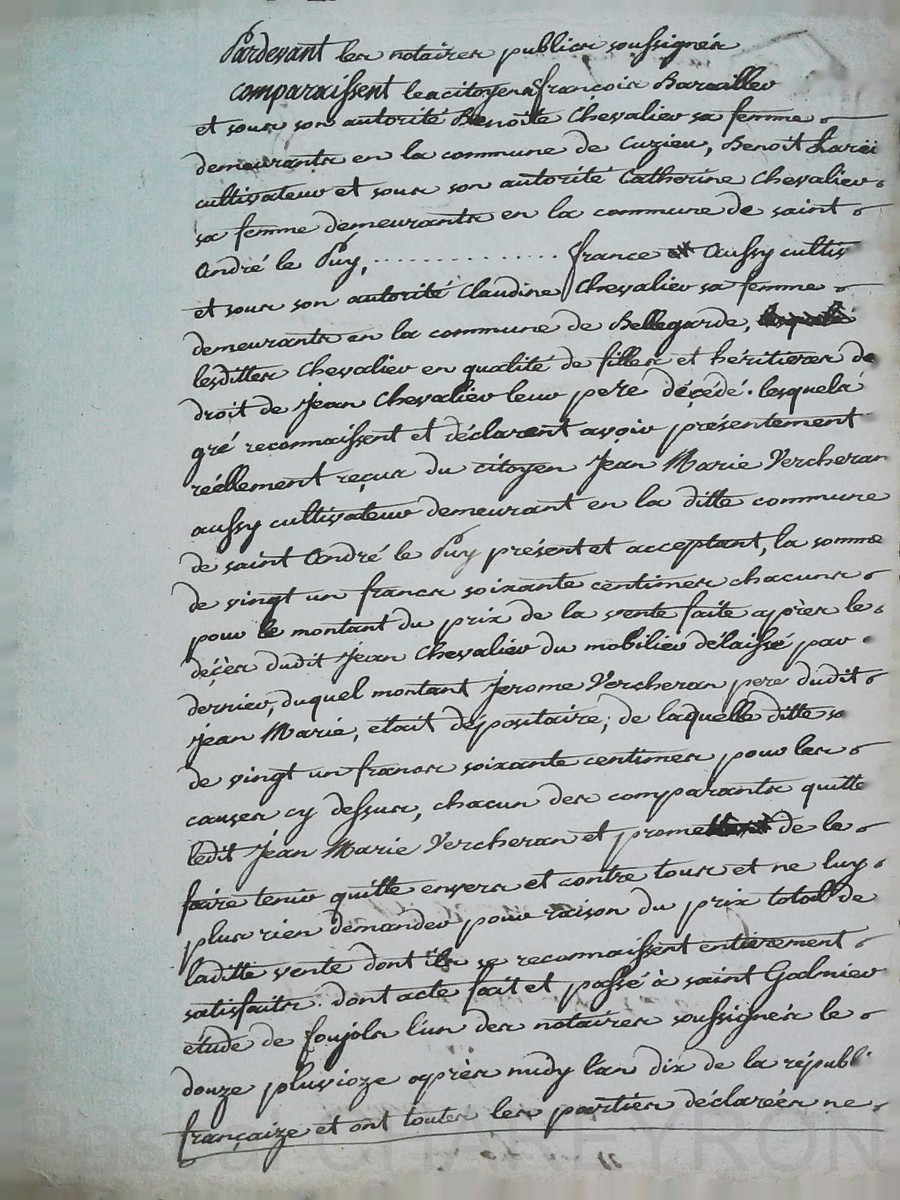 Pardevant les notaires publics soussignés
comparaissent les citoyens françois Barailler
et sous son autorité Benoite Chevalier sa femme
demeurants en la commune de Cuzieu, Benoit
cultivateur et sous son autorité Catherine Chevalier
sa femme demeurants en la commune de saint
André le Puy, .............. france aussy cultiv
et sous son autorité Claudine Chevalier sa femme
demeurants en la commune de Bellegarde,
lesdittes Chevalier en qualité de filles et héritières de
droit de Jean Chevalier leur pere décédé. lesquels
gré reconnaissent et déclarent avoir présentement
réellement reçus du citoyen Jean Marie Vercheran
aussy cultivateur demeurant en la ditte commune
de saint André le Puy présent et acceptant, la somme
de vingt un francs soixante centimes chacuns
pour le montant du prix de la vente faite après le
décès dudit Jean Chevalier du mobilier délaissé par
dernier, duquel montant Jerome Vercheran pere dudit
Jean Marie, etait dépositaire; de laquelle ditte so
de vingt un francs soixante centimes pour les
causes cy dessus, chacun des comparants quitte
ledit Jean Marie Vercheran et promet de le
faire tenir quitte envers et contre tous et ne luy
plus rien demander pour raison du prix total de
laditte vente dont ils se reconnaissent entierement
satisfaits. dont acte fait et passé à saint Galmier
étude de foujols l'un des notaires soussignés le
douze pluvioze après midy l'an dix de la républi
françaize et ont toutes les parties déclarées ne
CHALEYRON